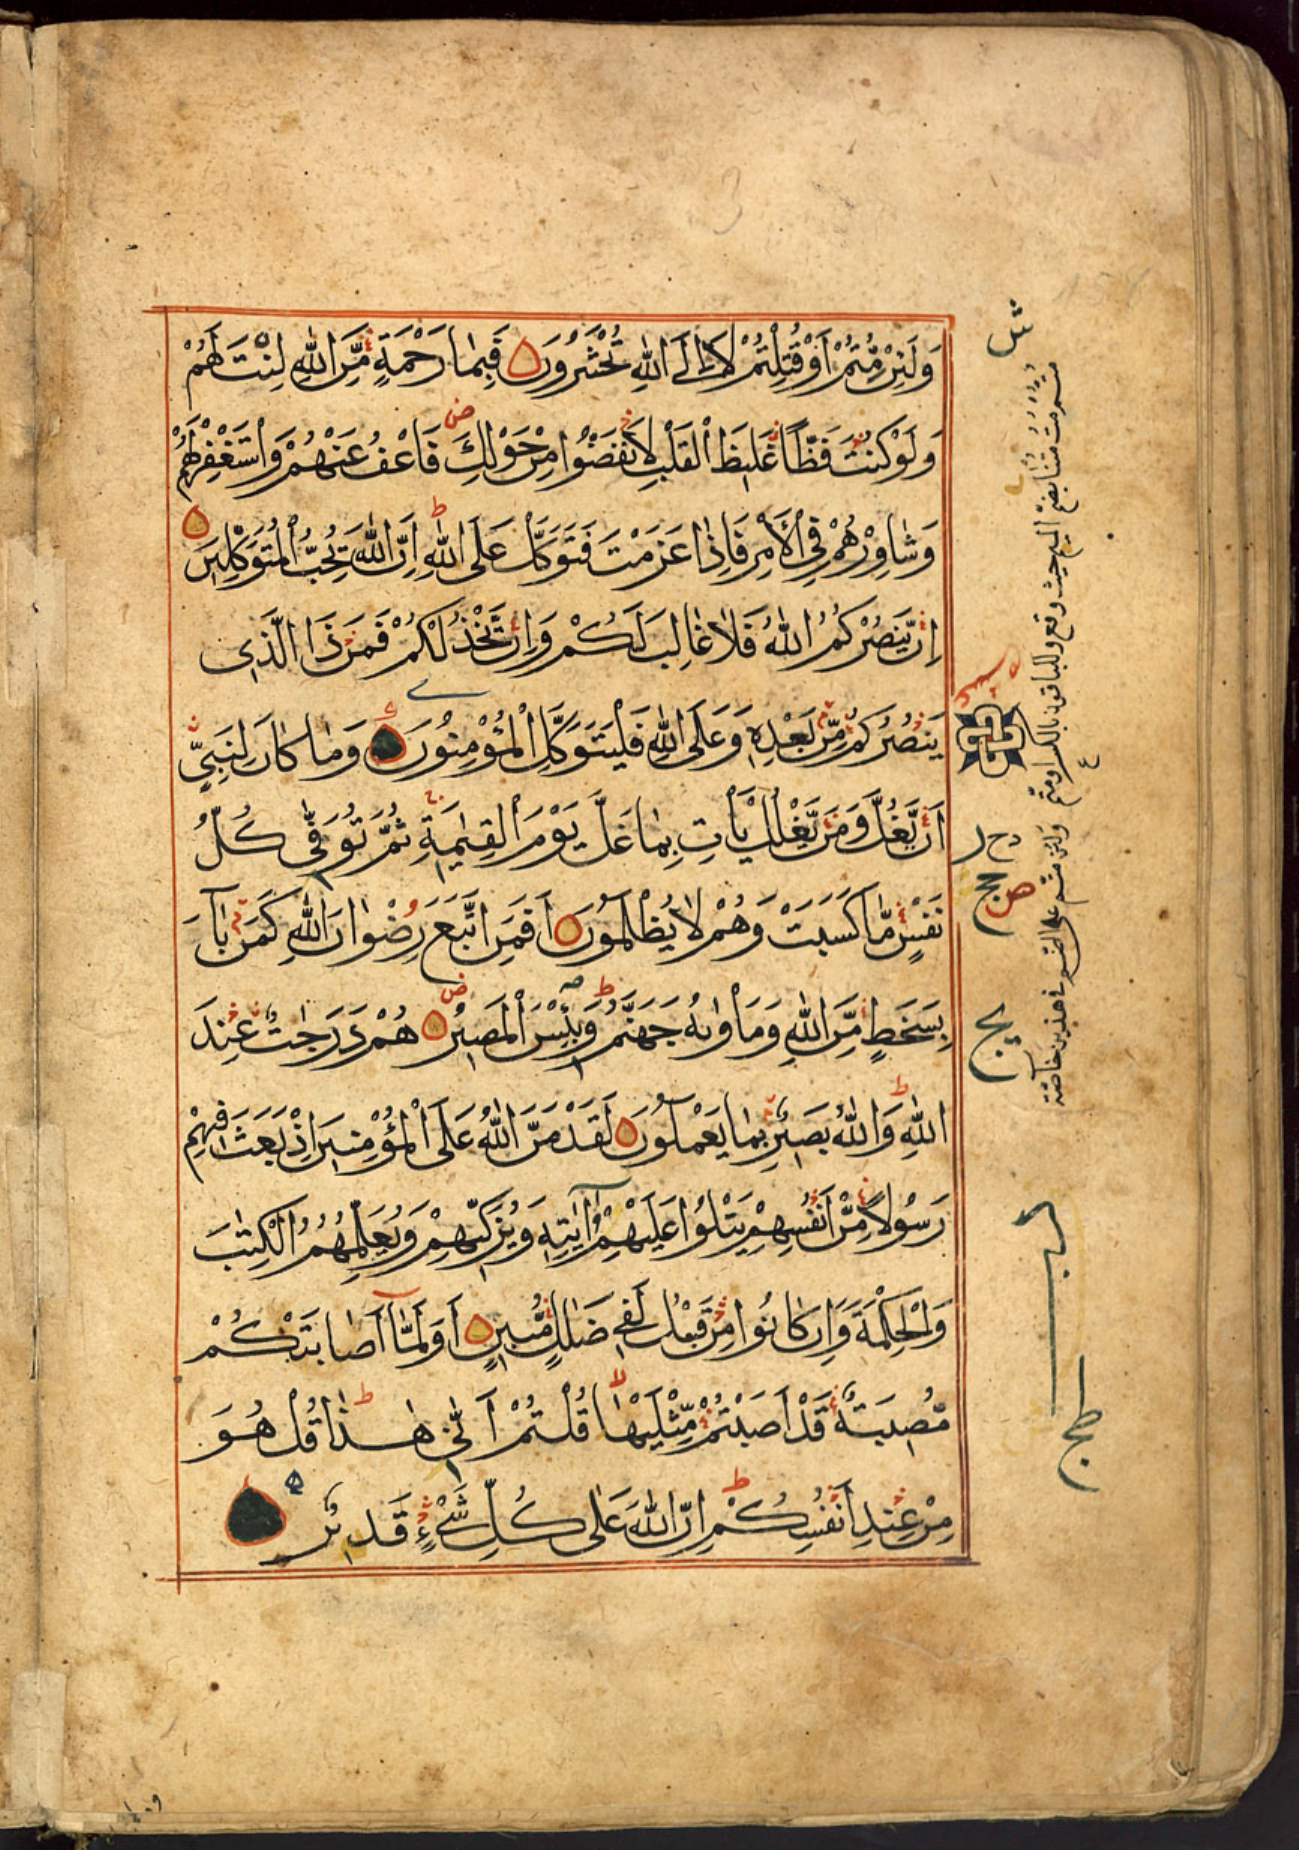 وَلَئِنْ مُّتُّمْ أَوْ قُتِلْتُمْ لَاإِلَى اللّٰهِ تُحْشَرُونَ فَبِمَا رَحْمَةٍ مِّنَ اللّٰهِ لِنْتَ لَهُمْ
وَلَوْ كُنْتَ فَظًّا غَلِيظَ الْقَلْبِ لَانْفَضُّوا مِنْ حَوْلِكَ فَاعْفُ عَنْهُمْ وَاسْتَغْفِرْ لَهُمْ
وَشَاوِرْهُمْ فِي الْأَمْرِ فَإِذَا عَزَمْتَ فَتَوَكَّلْ عَلَى اللّٰهِ إِنَّ اللّٰهَ يُحِبُّ الْمُتَوَكِّلِينَ
إِنْ يَّنْصُرْكُمُ اللّٰهُ فَلَا غَالِبَ لَكُمْ وَإِنْ يَّخْذُلْكُمْ فَمَنْ ذَا الَّذِي
يَنْصُرُكُمْ مِّنْ بَعْدِهِ وَعَلَى اللّٰهِ فَلْيَتَوَكَّلِ الْمُؤْمِنُونَ وَمَا كَانَ لِنَبِيٍّ
أَنْ يَّغُلَّ وَمَنْ يَّغْلُلْ يَأْتِ بِمَا غَلَّ يَوْمَ الْقِيٰمَةِ ثُمَّ تُوَفّٰى كُلُّ
نَفْسٍ مَّا كَسَبَتْ وَهُمْ لَا يُظْلَمُونَ أَفَمَنِ اتَّبَعَ رِضْوَانَ اللّٰهِ كَمَنْ بَآءَ
بِسَخَطٍ مِّنَ اللّٰهِ وَمَأْوٰىهُ جَهَنَّمُ وَبِئْسَ الْمَصِيرُ هُمْ دَرَجٰتٌ عِنْدَ
اللّٰهِ وَاللّٰهُ بَصِيرٌ بِمَا يَعْمَلُونَ لَقَدْ مَنَّ اللّٰهُ عَلَى الْمُؤْمِنِينَ إِذْ بَعَثَ فِيهِمْ
رَسُولًا مِّنْ أَنْفُسِهِمْ يَتْلُوا عَلَيْهِمْ آيٰتِهِ وَيُزَكِّيهِمْ وَيُعَلِّمُهُمُ الْكِتٰبَ
وَالْحِكْمَةَ وَإِنْ كَانُوا مِنْ قَبْلُ لَفِي ضَلٰلٍ مُّبِينٍ أَوَلَمَّآ أَصَابَتْكُمْ
مُّصِيبَةٌ قَدْ أَصَبْتُمْ مِّثْلَيْهَا قُلْتُمْ أَنّٰى هٰذَا قُلْ هُوَ
مِنْ عِنْدِ أَنْفُسِكُمْ إِنَّ اللّٰهَ عَلٰى كُلِّ شَيْءٍ قَدِيرٌ